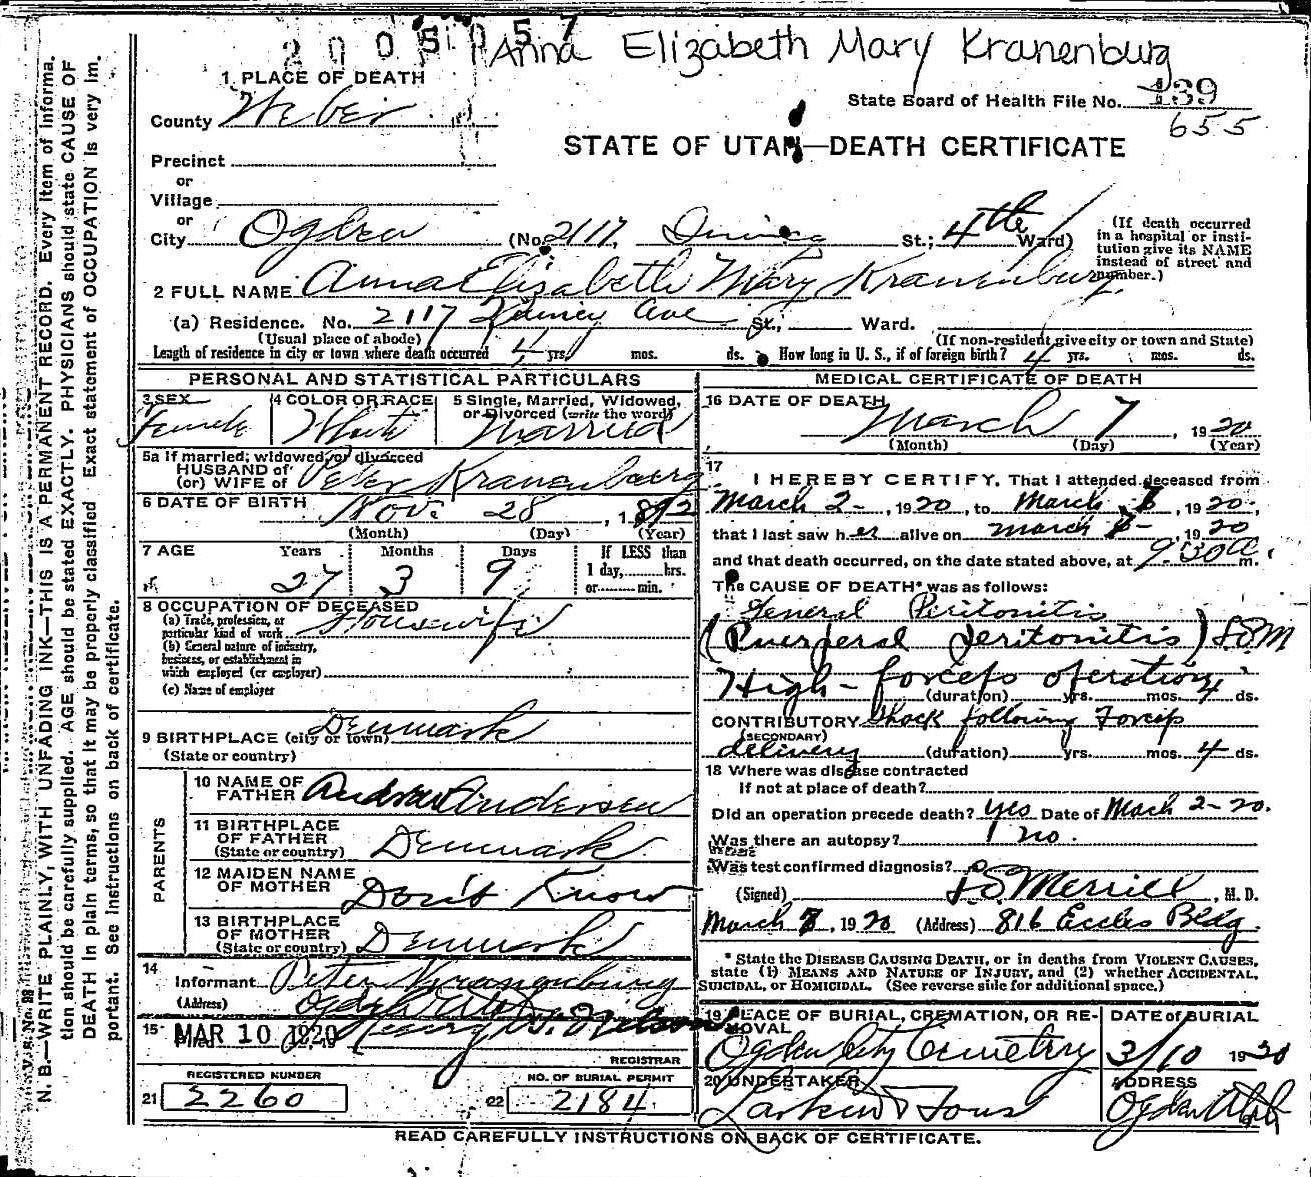 2005057
Anna Elizabeth Mary Kranenburg
1 PLACE OF DEATH
State Board of Health File No. 139
655
County Weber
STATE OF UTAH—DEATH CERTIFICATE
Precinct
or
Village
or
City Ogden (No. 2117, St.; 4th Ward)
(If death occurred in a hospital or institution give its NAME instead of street and number.)
2 FULL NAME Anna Elisabeth Mary Kranenburg
(a) Residence. No. 2117 Quincy Ave St., Ward.
(Usual place of abode) (If non-resident give city or town and State)
Length of residence in city or town where death occurred 4 yrs. mos. ds. How long in U. S., if of foreign birth? 4 yrs. mos. ds.
PERSONAL AND STATISTICAL PARTICULARS
3 SEX Female
4 COLOR OR RACE White
5 Single, Married, Widowed, or Divorced (write the word) Married
5a If married, widowed, or divorced
HUSBAND of
(or) WIFE of Peter Kranenburg
6 DATE OF BIRTH Nov. 28, 1892
(Month) (Day) (Year)
7 AGE Years Months Days If LESS than
27 3 9 1 day, hrs.
or min.
8 OCCUPATION OF DECEASED
(a) Trade, profession, or
particular kind of work Housewife
(b) General nature of industry,
business, or establishment in
which employed (or employer)
(c) Name of employer
9 BIRTHPLACE (city or town) Denmark
(State or country)
PARENTS
10 NAME OF FATHER Andrew Andersen
11 BIRTHPLACE OF FATHER Denmark
(State or country)
12 MAIDEN NAME OF MOTHER Don't Know
13 BIRTHPLACE OF MOTHER Denmark
(State or country)
14
Informant Peter Kranenburg
(Address) Ogden Utah
15 MAR 10 1920 Henry W. Nelson
REGISTRAR
REGISTERED NUMBER
21 2260
NO. OF BURIAL PERMIT
22 2184
MEDICAL CERTIFICATE OF DEATH
16 DATE OF DEATH
March 7, 1920
(Month) (Day) (Year)
17
I HEREBY CERTIFY, That I attended deceased from
March 2-, 1920, to March, 1920,
that I last saw her alive on March, 1920
and that death occurred, on the date stated above, at 9:30 a. m.
The CAUSE OF DEATH* was as follows:
General Peritonitis
(Puerperal Peritonitis) L.S.M
High-forceps operation
(duration) yrs. mos. 4 ds.
CONTRIBUTORY Shock following Forcep
(SECONDARY)
delivery (duration) yrs. mos. 4 ds.
18 Where was disease contracted
If not at place of death?
Did an operation precede death? yes Date of March 2-20.
Was there an autopsy? no.
What test confirmed diagnosis?
(Signed) L.S. Merrill, M. D.
March 7, 1920 (Address) 816 Eccles Bldg.
* State the DISEASE CAUSING DEATH, or in deaths from VIOLENT CAUSES,
state (1) MEANS AND NATURE OF INJURY, and (2) whether ACCIDENTAL,
SUICIDAL, or HOMICIDAL. (See reverse side for additional space.)
19 PLACE OF BURIAL, CREMATION, OR REMOVAL
Ogden City Cemetery
DATE of BURIAL
3/10 1920
20 UNDERTAKER
Larkin & Sons
ADDRESS
Ogden Utah
READ CAREFULLY INSTRUCTIONS ON BACK OF CERTIFICATE.
N. B.—WRITE PLAINLY, WITH UNFADING INK—THIS IS A PERMANENT RECORD. Every item of informa-
tion should be carefully supplied. AGE should be stated EXACTLY. PHYSICIANS should state CAUSE OF
DEATH in plain terms, so that it may be properly classified Exact statement of OCCUPATION is very im-
portant. See instructions on back of certificate.